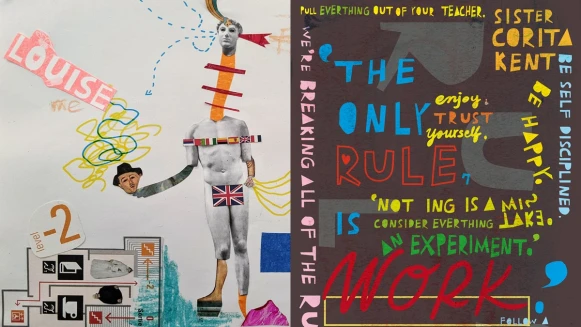 LOUISE
me
level -2
PULL EVERTHING OUT OF YOUR TEACHER.
SISTER
CORITA
KENT
WE'RE BREAKING ALL OF THE RU
'THE
ONLY
RULE
IS
WORK'
enjoy
TRUST
yourself.
BE HAPPY.
BE SELF DISCIPLINED.
'NOT ING IS A MISTAKE.
CONSIDER EVERYTHING
AN EXPERIMENT.'
FOLLOW A